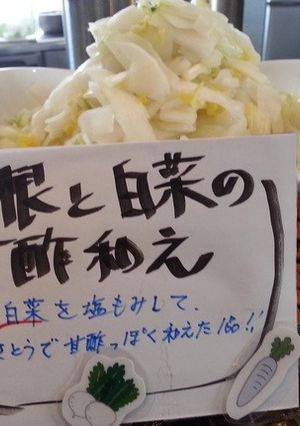 根と白菜の
酢和え
白菜を塩もみして、
さとうで甘酢っぽく和えた1品!!